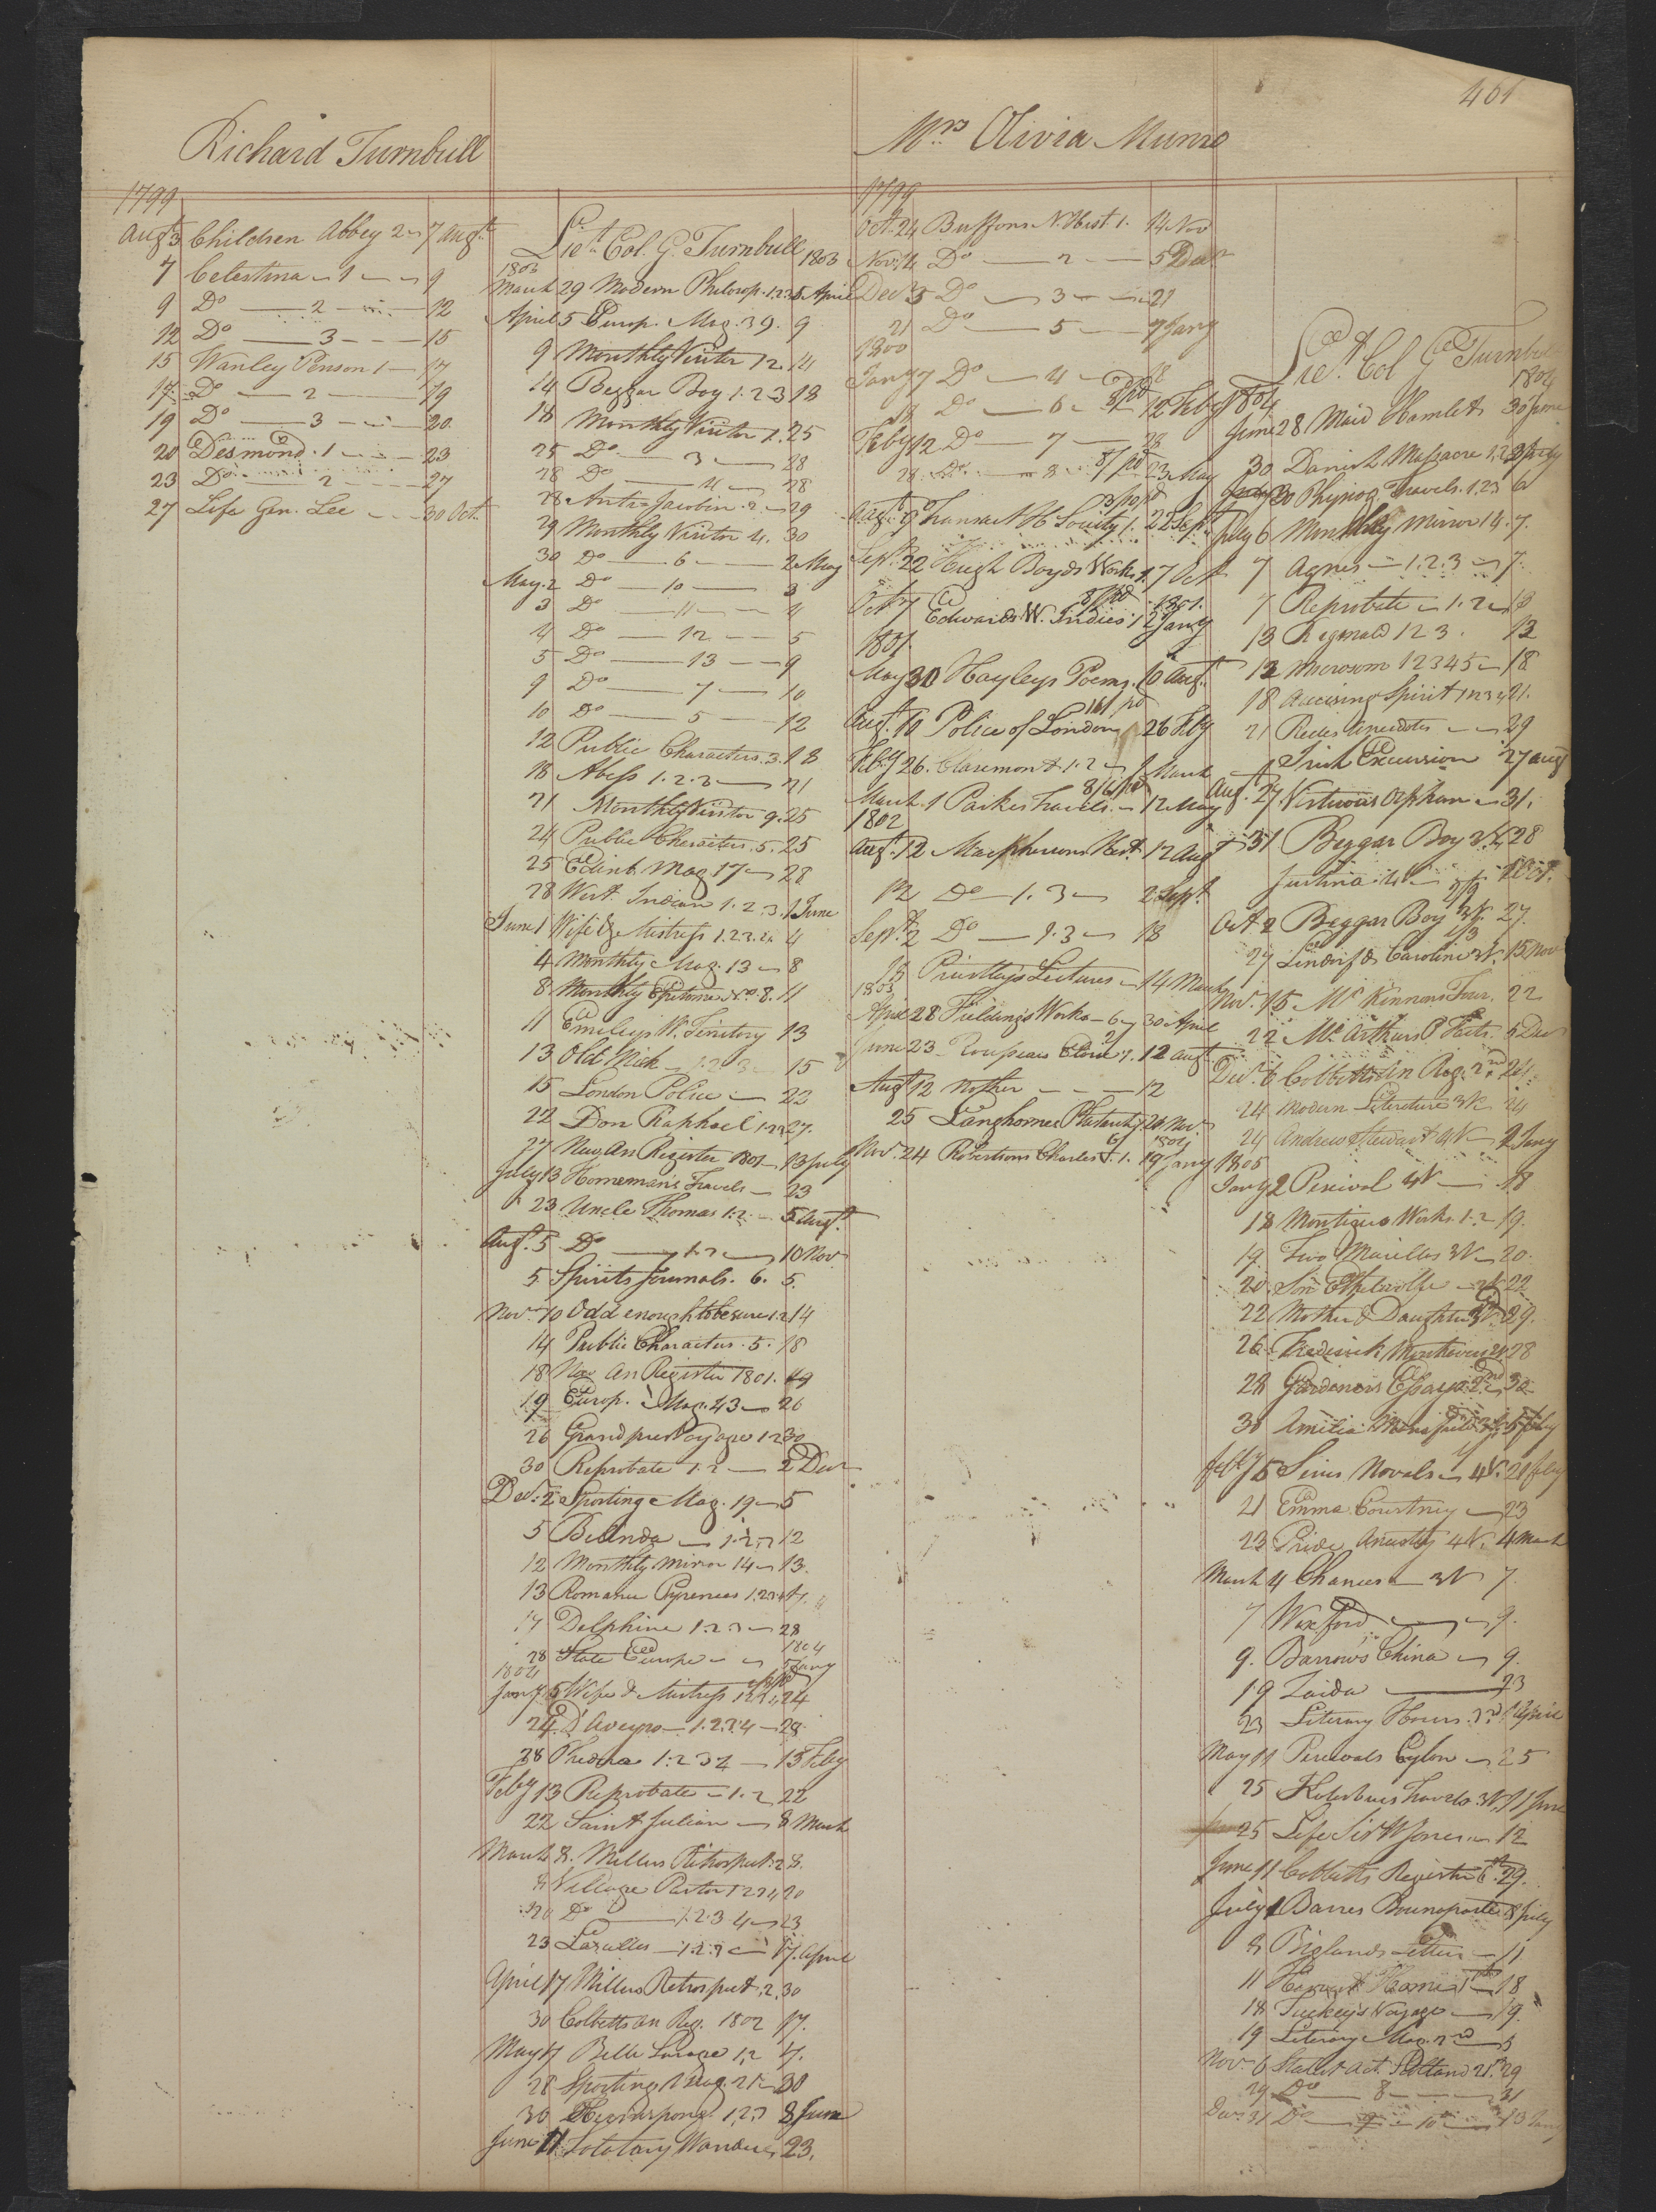 461
Richard Turnbull
1799
Augt 3 Children Abbey 2 7 Augt
7 Celestina 1 9
9 Do 2 12
12 Do 3 15
15 Wanley Penson 1 17
17 Do 2 19
19 Do 3 20
20 Desmond 1 23
23 Do 2 27
27 Life Gen. Lee 30 Oct.
Lieut. Col. G. Turnbull
1803 1803
March 29 Modern Philosop. 1.2.3 5 April
April 5 Europ. Mag. 39. 9
9 Monthly Visitor 12. 14
14 Beggar Boy 1.2.3 18
18 Monthly Visitor 1. 25
25 Do 3 28
28 Do 4 28
28 Anti-Jacobin 2 29
29 Monthly Visitor 4. 30
30 Do 6 2 May
May 2 Do 10 3
3 Do 11 4
4 Do 12 5
5 Do 13 9
9 Do 7 10
10 Do 5 12
12 Public Characters 3. 18
18 Abess 1.2.3 21
21 Monthly Visitor 9. 25
24 Public Characters 5. 25
25 Edinb. Mag 17 28
28 West Indian 1.2.3. 1 June
June 1 Wife & Mistress 1.2.3.4 4
4 Monthly Mag. 13 8
8 Monthly Epitome No. 8. 11
11 Emileys W. Territory 13
13 Old Nick 1.2.3 15
15 London Police 22
22 Don Raphael 1.2.3 27.
27 New An Register 1801 13 July
July 13 Hornemans Travels 23
23 Uncle Thomas 1.2 5 Augt.
Augt. 5 Do 1.2 10 Nov
5 Spirits Journals. 6. 5.
Novr 10 Odd enough to be sure 1.2 14
14 Public Characters 5. 18
18 New An Register 1801. 19
19 Europ. Mag. 43 26
26 Grandpres Voyage 1.2 30
30 Reprobate 1.2 2 Decr
Decr. 2 Sporting Mag. 19 5
5 Belinda 1.2.3 12
12 Monthly Mirror 14 13.
13 Romance Pyrenees 1.2.3.4
Delphine 1.2.3 28
1804
28 State Europe 5 Jany
1804
Jany 5 Wife & Mistress 24
24 D'Aveyro 1.2.3.4 28
28 Phedora 1.2.3.4 13 Feby
Feby 13 Reprobate 1.2 22
22 Saint Julian 8 March
March 8. Millers Retrospect. 2 8.
8 Village Pastor 20
20 Do 1.2.3.4 23
23 Lascelles 1.2.3 17. April
April 17 Millers Retrospect. 2. 30
30 Cobbetts An Reg. 1802 17.
May 17 Belle Sauvage 1.2
28 Sporting Mag. 21 30
30 1.2.3 8 June
June 11 Solotary Wanderer 23.
Mrs Olivia Munro
1799
Oct. 24 Buffons N. Hist 1. 14 Nov
Nov 14 Do 2 5 Decr
Decr 5 Do 3 21
21 Do 5 7 Jany
1800
Jany 7 Do 4 18
18 Do 6 12 Feby
Feby 12 Do 7 28
28 Do 8 23 May
Augt. 9 Transact H Society 1. 22 Sept
Sept. 22 Hugh Boyds Works 1. 7 Oct
Oct 7 Edwards W. Indies 1 1801. 2 Jany
1801.
May 30 Hayleys Poems. 10 Augt.
Augt. 10 Police of London 26 Feby
Feby 26. Claremont 1.2 1 March
March 1 Parkes Travels 12 May
1802
Augt. 12 Macphersons Hist. 12 Augt
12 Do 1.3 2 Sept.
Septr. 2 Do 1.3 18
18 Priestleys Lectures 14 March
1803
April 28 Fieldings Works 6 30 April
June 23 1. 12 Augt.
Augt 12 Mother 12
25 Langhornes Plutarch 24 Nov.
1804
Nov. 24 Robertsons Charles 5. 1. 19 Jany
Lieut. Col G Turnbull
1804 1804
June 28 Maid Hamlet 30 June
30 Danish Massacre 1.2 July
30 Physiog. Travels. 1.2.3 6
July 6 Monthly Mirror 14. 7.
7 Agnes 1.2.3 7.
7 Reprobate 1.2 13
13 Reginald 1 2 3. 13
13 Microcosm 1 2 3 4 5 18
18 Accusing Spirit 1.2.3.4 21.
21 Recess Anecdotes 29
Irish Excursion 27 Aug
Aug. 27 Virtuous Orphan 31.
31 Beggar Boy 3 V. 28
Justina 2 Oct.
Oct 2 Beggar Boy 3 V. 27.
27 Lindorf & Caroline 3 V. 15 Nov
Nov. 15 McKinnons Tour. 22
22 McArthurs P. Facts. 6 Decr
Decr. 6 Cobbetts An Reg. 2nd 24.
24 Modern Literature 3 V. 24
24 Andrew Stewart 4 V 2 Jany
1805
Jany 2 Percival 4 V 18
18 Montigues Works 1.2 19.
19. Two Marillos 3 V. 20.
20. Son Ethelwolfe 22
22 Mother & Daughter 3 V. 29.
26 Frederick 28
28 Gardeners Essays 2nd 30
30 Amelia Mansfield 5 Feby
Feby 5 Sinis Novels 4 V. 21 Feby
21 Emma Courtney 23
23 Pride Ancestry 4 V. 4 March
March 4 Chances 3 V 7.
7 Wexford 9.
9. Barrows China 9.
19 Zaida 23
23 Literary Hours 3rd 1 April
May 11 Percivals Ceylon 25
25 Kotzebues Travels. 3 V. 11 June
25 Life Sir W Jones 12
June 11 Cobbetts Register 6th 29.
July 1 Barres Bounaparte 8 July
8 Biglands Letters 11
11 Home 18
18 Tuckeys Voyage 19.
19 Literary Mag. 2nd
Novr 6 Statist. Act. Scotland 21st 29
29 Do 8 31
Decr. 31 Do 9 10 13 Jany